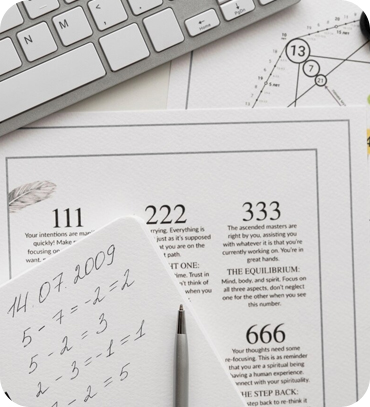 N
M
<
,
13
7
21
111
Your intentions are
quickly! Make
focusing on
want.
222
Everything is
just as it's supposed
at you are on the
path.
HT ONE:
time. Trust in
n't think of
when you
333
The ascended masters are
right by you, assisting you
with whatever it is that you're
currently working on. You're in
great hands.
THE EQUILIBRIUM:
Mind, body, and spirit. Focus on
all three aspects, don't neglect
one for the other when you see
this number.
666
Your thoughts need some
re-focusing. This is a reminder
that you are a spiritual being
having a human experience.
connect with your spirituality.
THE STEP BACK:
step back to re-think it
14.07.2009
5-7=-2=2
5-2=3
2-3=-1=1
2-2=5